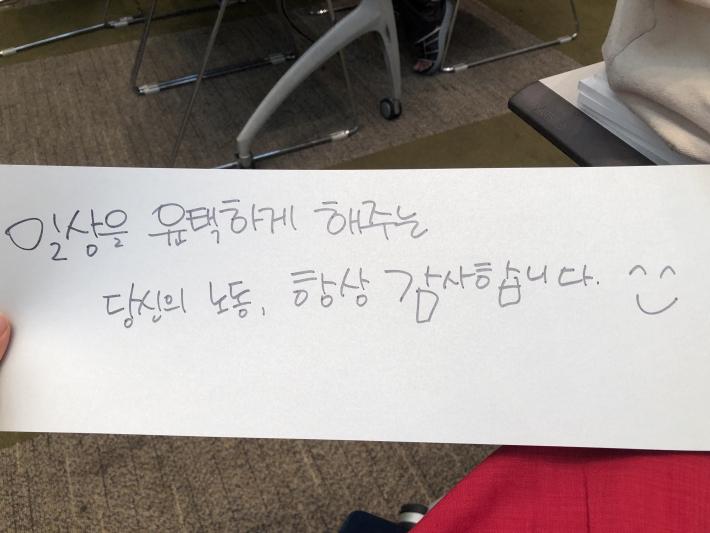 일상을 윤택하게 해주는
당신의 노동, 항상 감사합니다. ^^